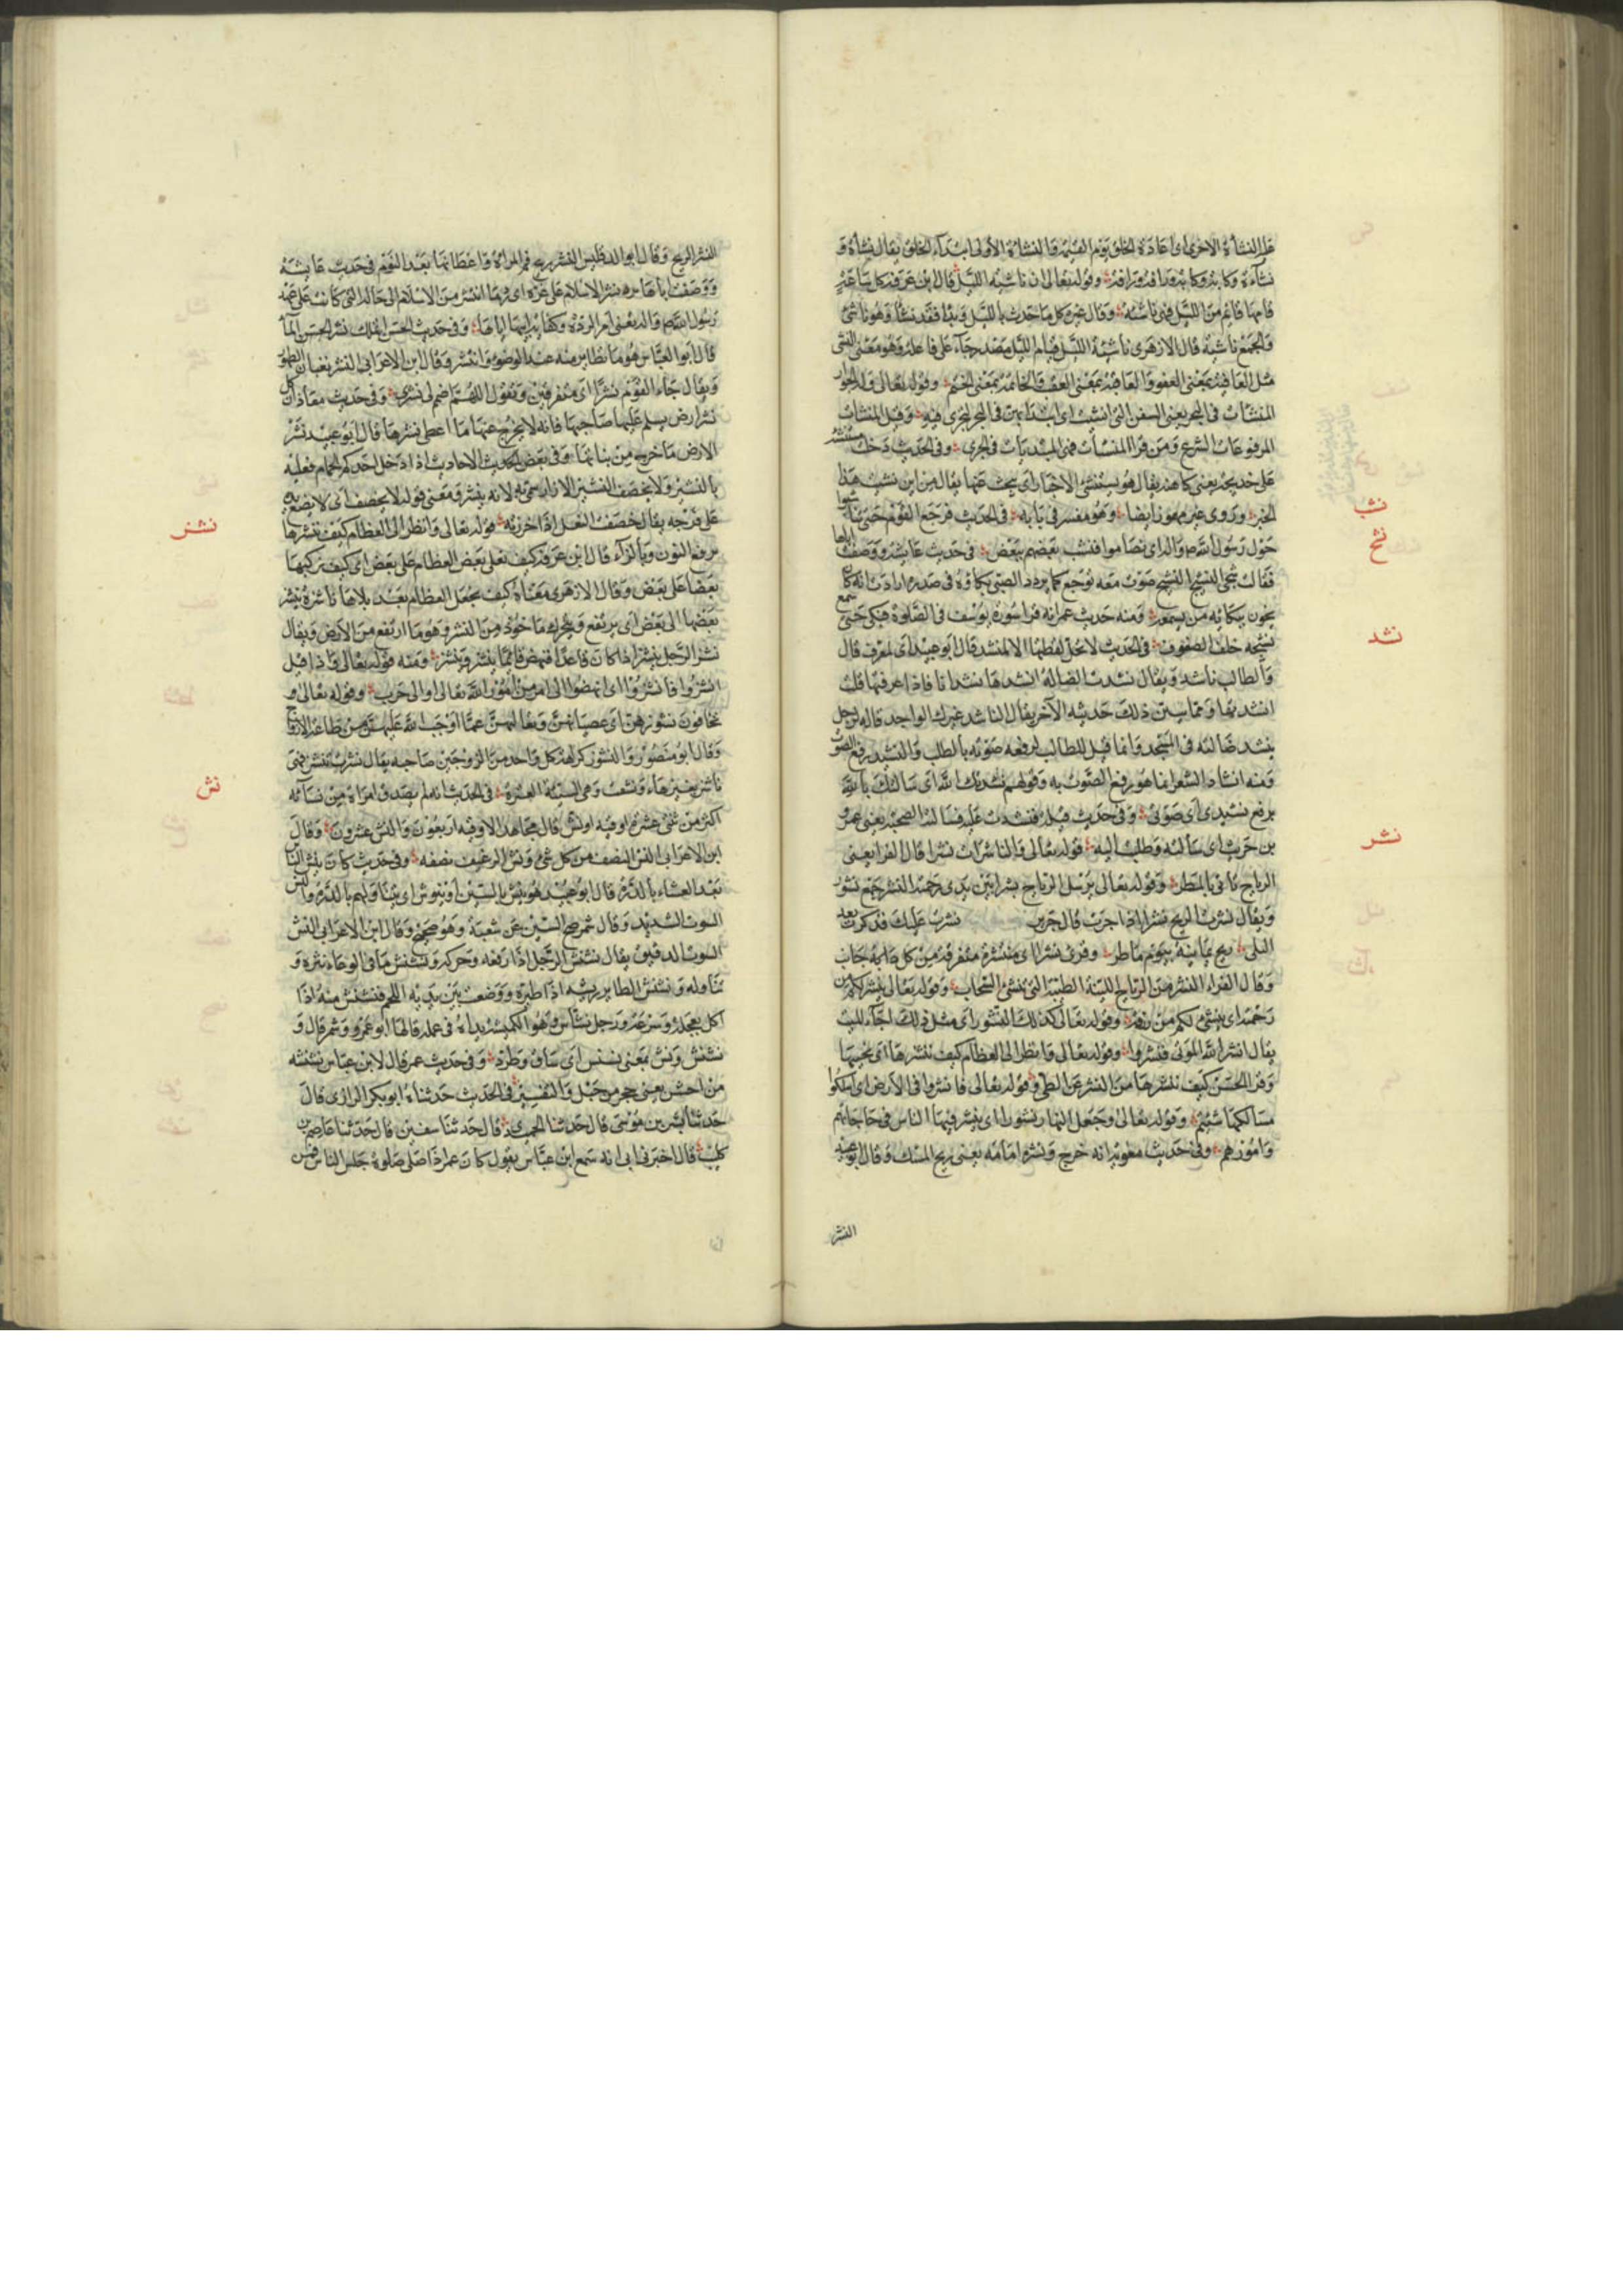 عليه النشأة الاخرى اى اعادة الخلق يوم القيمة والنشاة الأولى ابتدآء الخلق يقال نشأة و
نشآءة وكابة وكابة ورافة ورافة وقوله تعالى ان ناشئة الليل قال ابن عرفة كل ساعة
قامها قائم من الليل فهى ناشئة وقال غيره كل ما حدث بالليل وبدا فقد نشأ وهو ناشئ
والجمع ناشئة قال الازهرى ناشئة الليل قيام الليل مصدر جآء على فاعلة وهو معنى النشى
مثل العافية بمعنى العفو والعاقبة بمعنى العقب والخاتمة بمعنى الختم وقوله تعالى وله الجوار
المنشآت فى البحر يعنى السفن التى انشئت اى ابتدأ بهن فى البحر لتجرى فيه وقيل المنشات
المرفوعات الشرع ومن قرا المنشآت فهى المبتديات فى الجرى وفى الحديث دخلت مستنشئة
على خديجة يعنى كاهنة يقال هو يستنشئ الاخبار اى يبحث عنها يقال من اين نشيت هذا
الخبر وروى غير مهموز ايضا وهو مفسر فى بابه فى الحديث فرجع القوم حتى تناشبوا
نشب
حول رسول الله صم والد اى تضاموا فنشب بعضهم ببعض فى حديث عايشة ووصفت اباها
نشج
فقالت شجى النشيج النشيج صوت معه توجع كما يردد الصبى بكاؤه فى صدره ارادت انه كان
يحزن ببكائه من يسمعه ومنه حديث عمر انه قرا سورة يوسف فى الصلوة فبكى حتى سمع
نشيجه خلف الصفوف فى الحديث لا تحل لقطتها الا لمنشد قال ابو عبيد اى لمعرف قال
نشد
والطالب ناشد ويقال نشدت الضالة انشدها نشدانا فاذا عرفتها قلت
انشدتها ومما يبين ذلك حديثه الآخر يقال الناشد غيرك الواجد قاله لرجل
ينشد ضالته فى المسجد وانما قيل للطالب لرفعه صوته بالطلب والنشيد رفع الصوت
ومنه انشاد الشعر انما هو رفع الصوت به وقولهم نشدتك الله اى سالتك بالله
برفع نشيدى اى صوتى وفى حديث قيلة فنشدت عليه فسالته الصحبة يعنى عمرو
بن حريث اى سألته وطلبت اليه قوله تعالى والناشرات نشرا قال الفرا يعنى
نشر
الرياح تأتى بالمطر وقوله تعالى يرسل الرياح بشرا بين يدى رحمته النشر جمع نشور
ويقال نشرت الريح نشرا اذا جرت قال جرير نشرت عليك فذكرت بعد
البلى ريح يمانية بيوم ماطر وقرئ نشرا اى منتشرة متفرقة من كل جانب
وقال الفراء النشر من الرياح اللينة الطيبة التى تنشئ السحاب وقوله تعالى ينشر لكم من
رحمته اى ينشئ لكم من رزقه وقوله تعالى كذلك النشور اى مثل ذلك احيآء الميت
يقال انشر الله الموتى فنشروا وقوله تعالى وانظر الى العظام كيف ننشرها اى نحييها
وقرا الحسن كيف ننشرها من النشر عن الطى وقوله تعالى فانتشروا فى الارض اى اسلكوا
مسالكها شئتم وقوله تعالى وجعل النهار نشورا اى ينتشر فيها الناس فى حاجاتهم
وامورهم وفى حديث معوية انه خرج ونشره امامه يعنى ريح المسك وقال ابو عبيد
النشر
النشر الريح وقال ابو الدقيش النشر ريح فم المرأة واعطافها بعد النوم فى حديث عايشة
ووصفت اباها نشر الاسلام على غره اى ما انتشر من الاسلام الى حاله التى كانت على عهد
رسول الله صم والد يعنى امر الردة وكفاية ابيها اياها وفى حديث الحسن اتملك نشر الماء
قال ابو العباس هو ما تطاير منه عند الوضوء وانتشر وقال ابن الاعرابى النشر
ويقال جاء القوم نشرا اى متفرقين وتقول اللهم اضمم لى نشرى وفى حديث معاذ ان كل
نشر ارض يسلم عليها صاحبها فانه لا يخرج عنها ما اعطى نشرها قال ابو عبيد نشر
الارض ما خرج من بناتها وفى بعض الحديث الاحاديث اذا دخل احدكم الحمام فعليه
بالنشير ولا يخصف النشير الازار سمى به لانه ينشر ومعنى قوله لا يخصف اى لا يضع يده
على فرجه يقال خصفت النعل اذا خرزته قوله تعالى وانظر الى العظام كيف ننشزها
نشز
برفع النون وبالزآء قال ابن عرفة كيف نعلى بعض العظام على بعض اى كيف تركيبها
بعضا على بعض وقال الازهرى معناه كيف نجعل العظام بعد بلاها ناشزة ننشز
بعضها الى بعض اى يرتفع ويتحرك ماخوذ من النشز وهو ما ارتفع من الارض ويقال
نشز الرجل ينشز اذا كان قاعدا فنهض قائما ينشز وينشز ومنه قوله تعالى واذا قيل
انشزوا فانشزوا اى انهضوا الى امر من امور الله تعالى او الى حرب وقوله تعالى و
تخافون نشوزهن اى عصيانهن وتعاليهن عما اوجب الله عليهن من طاعة الازواج
وقال ابو منصور والنشوز كراهة كل واحد من الزوجين صاحبه يقال نشزت تنشز فهى
ناشز بغير هاء ونشصت وهى السيئة العشرة فى الحديث انه لم يصدق امراة من نسآئه
نش
اكثر من ثنتى عشرة اوقية ونش قال مجاهد الاوقية اربعون والنش عشرون وقال
ابن الاعرابى النش النصف من كل شئ ونش الرغيف نصفه وفى حديث كان ينش الناس
بعد العشاء بالدرة قال ابو عبيد هو ينس بالسين او ينوش اى يتناولهم بالدرة والنش
السوق الشديد وقال شمر صح الشين عن شعبة وهو صحيح وقال ابن الاعرابى النش
السوق الدقيق يقال نشنش الرجل اذا رفعه وحركه ونشنش ما فى الوعاء نثره و
تناوله ونشنش الطاير ريشه اذا طيره ووضعت بين يديه اللحم فنشنش منه اذا
اكل بعجلة وسرعة ورجل نشناش وهو الكميش يداه فى عمله قالها ابو عمرو وشمر قال و
نشنش ونش بمعنى نسنس اى ساق وطرد وفى حديث عمر قال لابن عباس نشنشه
من اخشن يعنى حجر من جبل والتفسير فى الحديث حدثناه ابو بكر الرازى قال
حدثنا بشر بن موسى قال حدثنا الحميدى قال حدثنا سفين قال حدثنا عاصم بن
كليب قال اخبرنى ابى انه سمع ابن عباس يقول كان عمر اذا صلى صلوة جلس الناس فمن